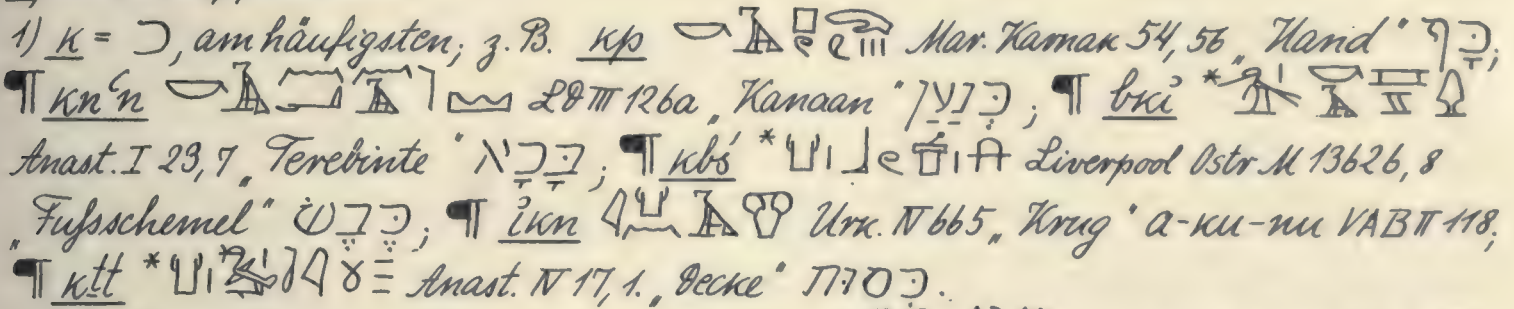 1) k = כ, am häufigsten; z. B. kp Mar. Karnak 54, 56 „Hand“ כַּף;
¶ knꜥn LD III 126a „Kanaan“ כְּנַעַן; ¶ bkỉ *
Anast. I 23,7 „Terebinte“ בָּכָא; ¶ kbś * Liverpool Ostr M 13626, 8
„Fußschemel“ כֶּבֶשׁ; ¶ ỉkn Urk. IV 665 „Krug“ a-ku-nu VAB II 148;
¶ kṯt * Anast. IV 17,1. „Decke“ כסות.